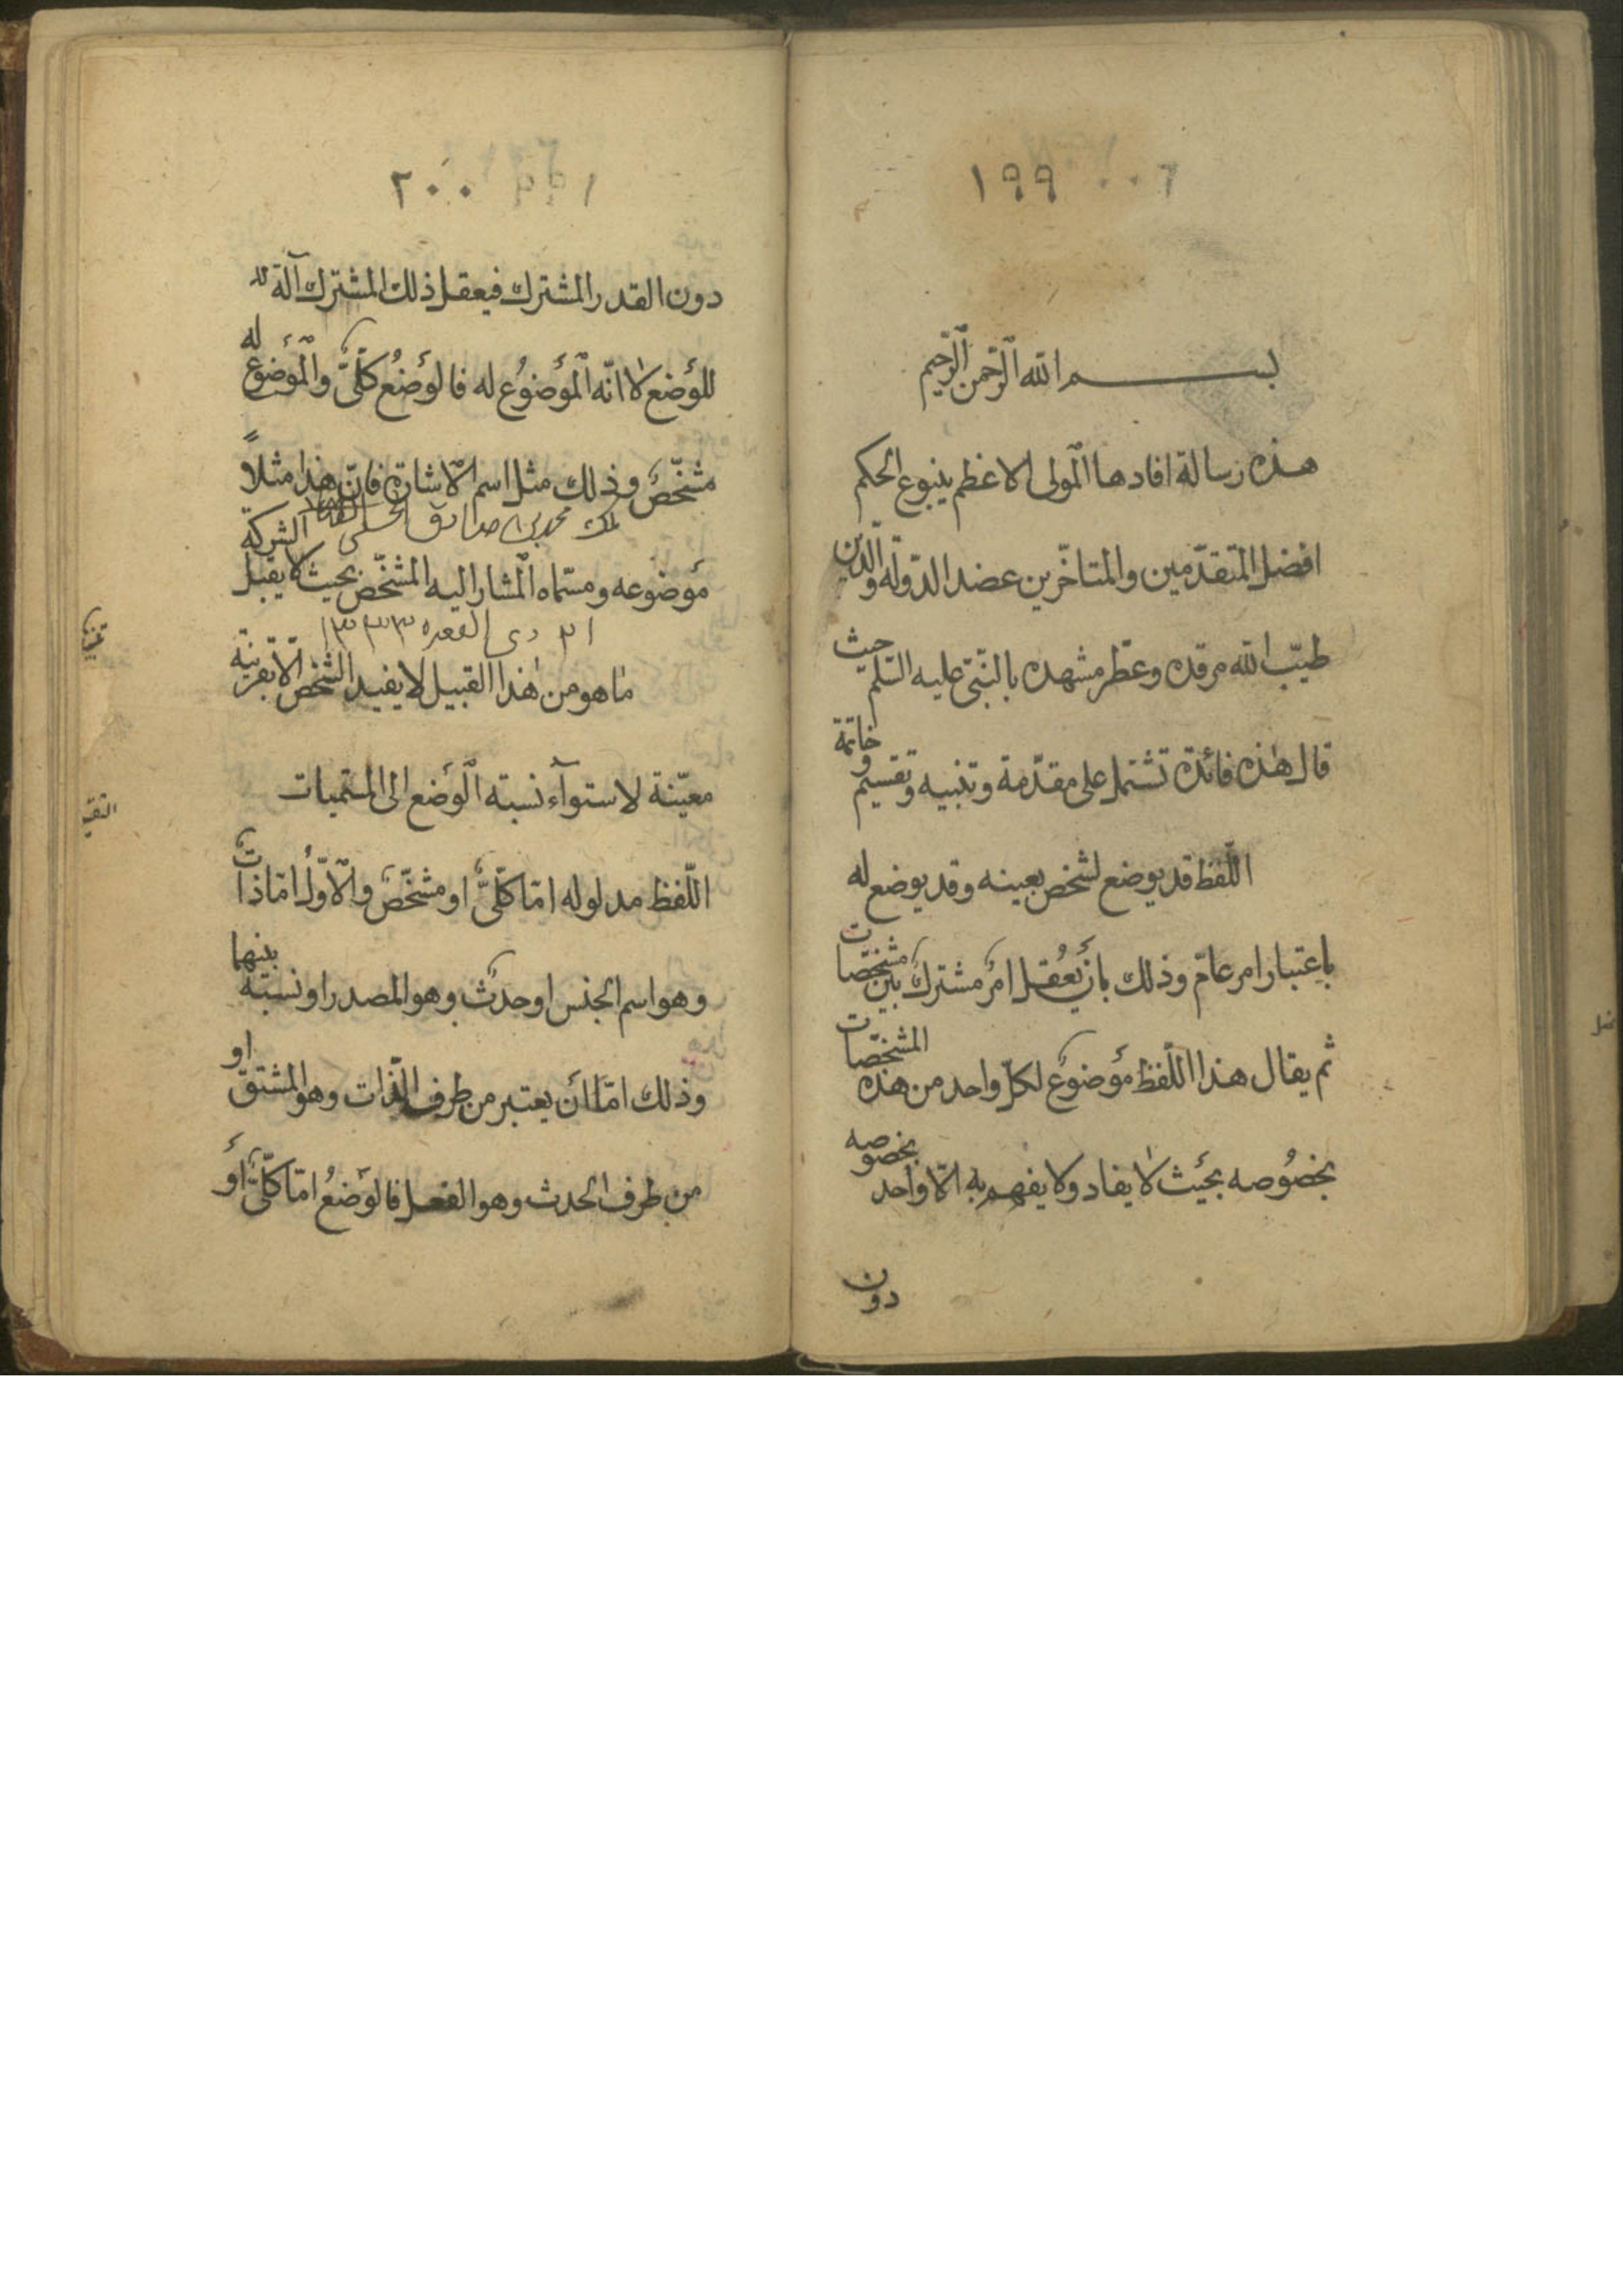 ١٩٩
بسم الله الرحمن الرحيم
هذه رسالة افادها المولى الاعظم ينبوع الحكم
افضل المتقدّمين والمتاخّرين عضد الدّولة والدّين
طيّب الله مرقده وعطّر مشهده بالنّبىّ عليه السّلم حيث
قال هذه فائدة تشتمل على مقدّمة وتنبيه وتقسيم وخاتمة
اللّفظ قد يوضع لشخص بعينه وقد يوضع له
باعتبار امر عامّ وذلك بان يُعقل امرٌ مشترك بين مشخّصات
ثم يقال هذا اللّفظ موضوعٌ لكلّ واحد من هذه المشخّصات
بخصُوصه بحيث لا يفاد ولا يفهم به الّا واحد بخصوصه
دون
٢٠٠
دون القدر المشترك فيعقل ذلك المشترك آلة
للوَضع لا انّه الموضُوع له فالوَضعُ كلّىٌّ والموضوع له
مشخّصٌ وذلك مثل اسم الاشارة فانّ هذا مثلاً
محمد بن صادق
موضوعه ومسمّاه المشار اليه المشخّص بحيث لا يقبل الشركة
٢١ ذى القعده ١٣٣٣
ما هو من هذا القبيل لا يفيد الشخّص الّا بقرينة
معيّنة لاستوآء نسبة الوَضع الى المسمّيات
اللّفظ مدلوله امّا كلّىٌّ او مشخّصٌ والاوّلُ امّا ذات
وهو اسم الجنس او حدثٌ وهو المصدر او نسبة بينهما
وذلك امّا ان يعتبر من طرف الذّات وهو المشتق او
من طرف الحدث وهو الفعل فالوَضعُ امّا كلّىٌّ اوَ